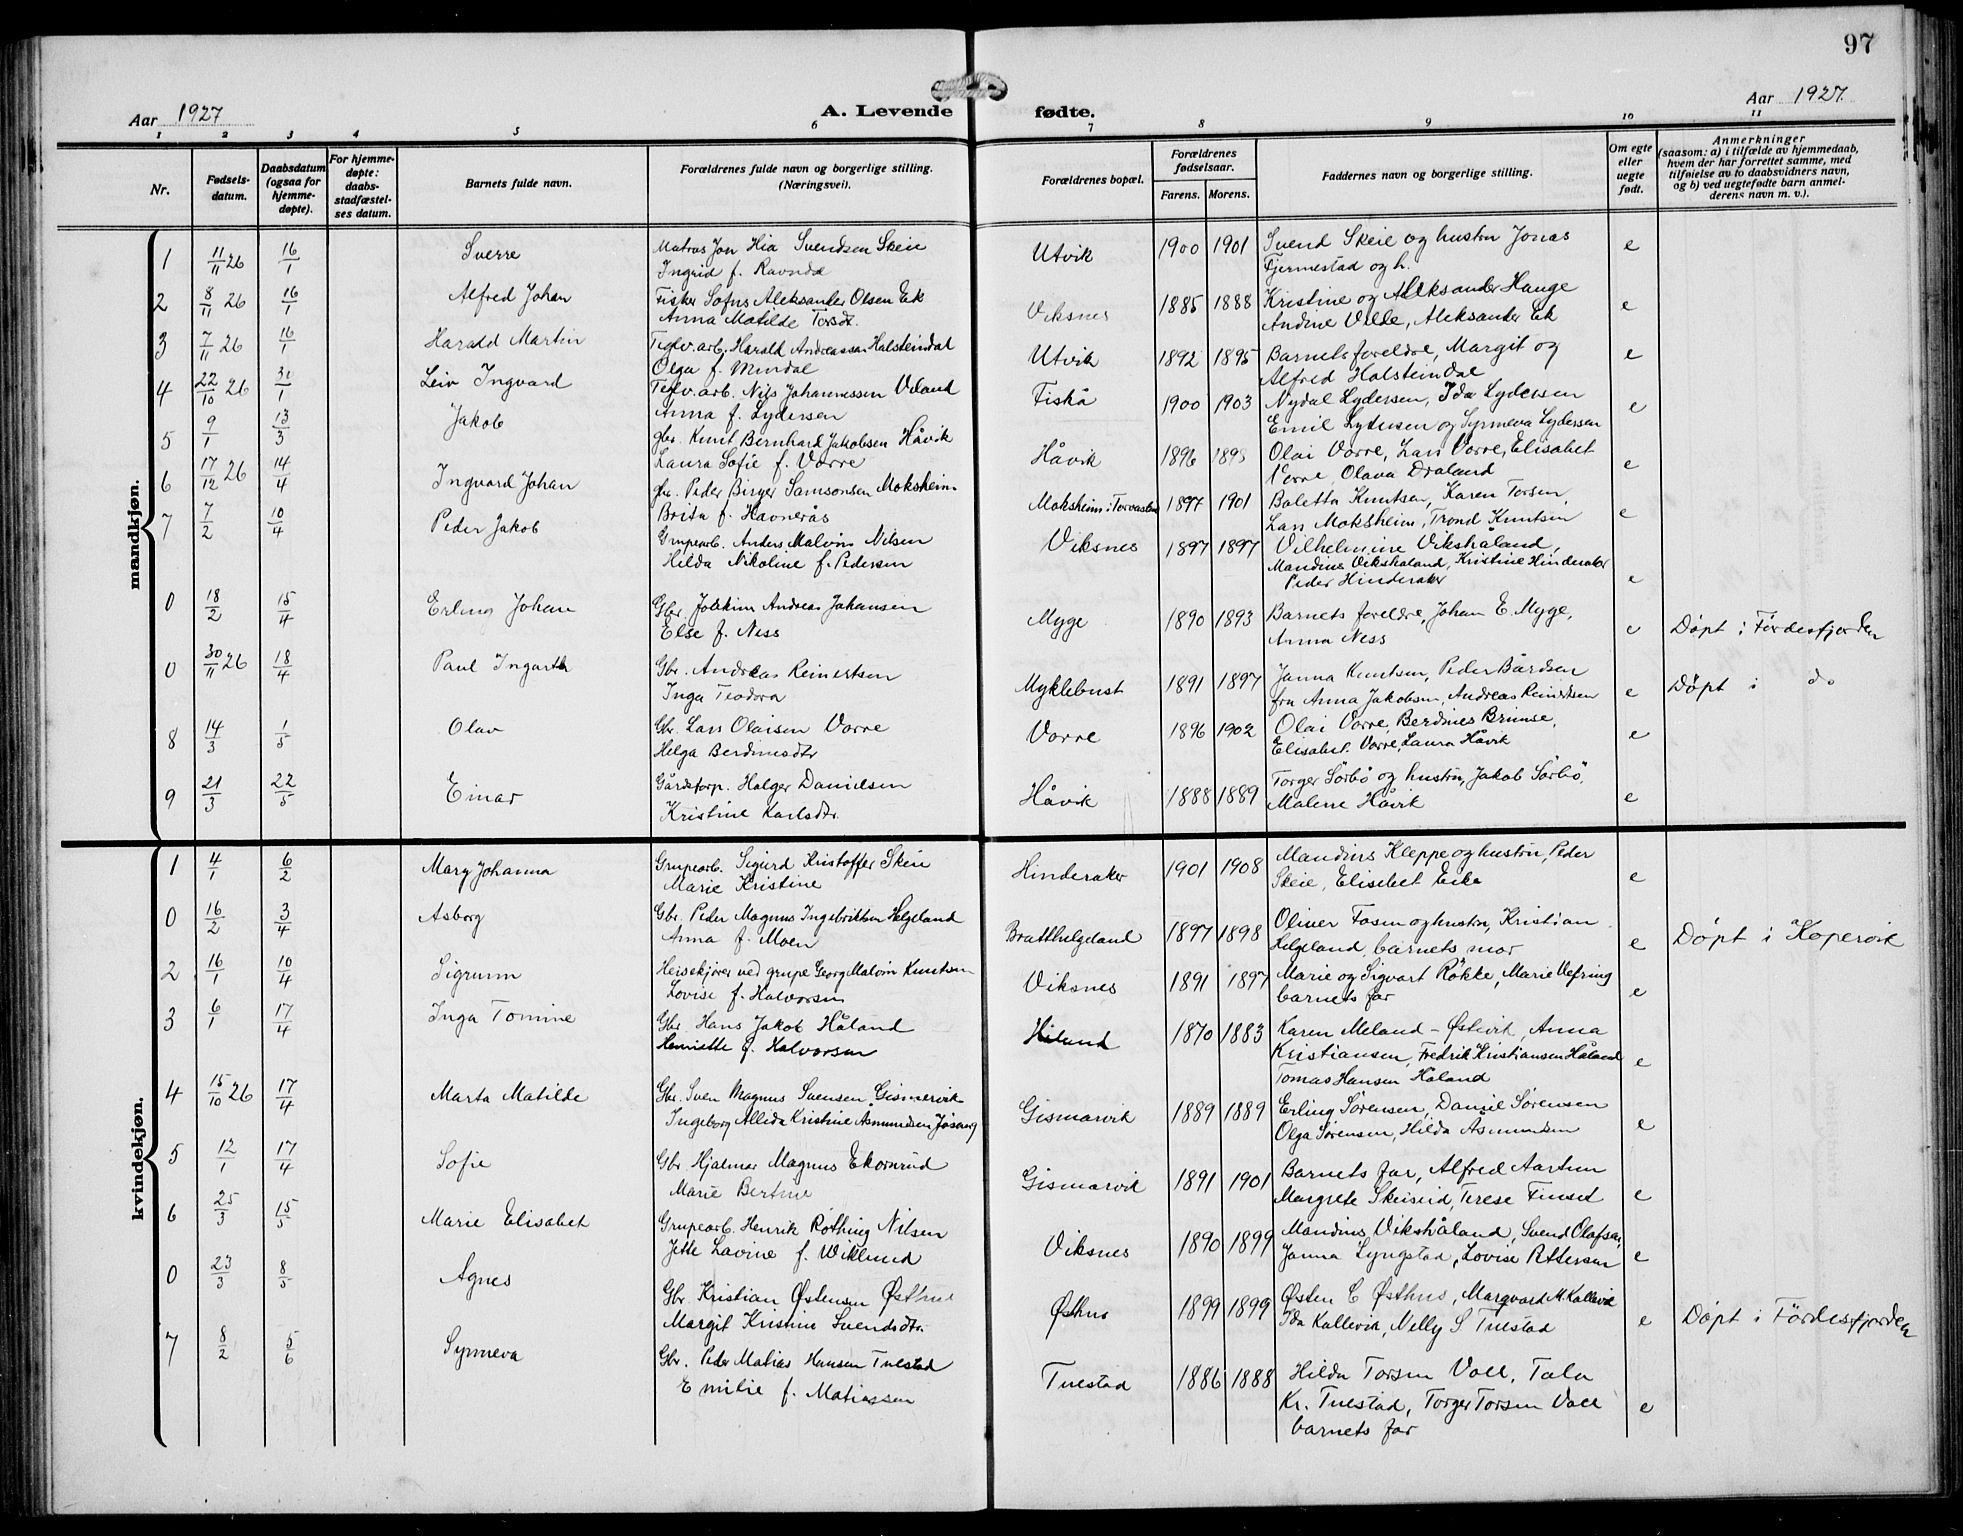 97
Aar 1927
A. Levende fødte.
Aar 1927.
1 2 3 4 5 6 7 8 9 10 11
Nr.
Fødsels-
datum.
Daabsdatum
(ogsaa for
hjemme-
døpte).
For hjemme-
døpte:
daabs-
stadfæstel-
ses datum.
Barnets fulde navn.
Forældrenes fulde navn og borgerlige stilling.
(Næringsvei).
Forældrenes bopæl.
Forældrenes
fødselsaar.
Farens. Morens.
Faddernes navn og borgerlige stilling.
Om egte
eller
uegte
født.
Anmerkninger
(saasom: a) i tilfælde av hjemmedaab,
hvem der har forrettet samme, med
tilføielse av to daabsvidners navn,
og b) ved uegtefødte barn anmel-
derens navn m. v.).
mandkjøn.
1 11/11 26 16/1 Sverre Matros Jon Hia Svendsen Skeie Utvik 1900 1901 Svend Skeie og hustru Jonas e
Ingrid f. Ravndal Fjermestad og h.
2 8/11 26 16/1 Alfred Johan Fisker Sofus Aleksander Olsen Ek Viksnes 1885 1888 Kristine og Aleksander Hauge e
Anna Matilde Torsdt. Andine Vilde, Aleksander Ek
3 7/11 26 16/1 Harald Martin Teglv.arb. Harald Andreassen Halsteindal Utvik 1892 1895 Barnets foreldre, Margit og e
Olga f. Mindal Alfred Halsteindal
4 22/10 26 31/1 Leiv Ingvard Teglv.arb. Nils Johannessen Veland Fiskå 1900 1903 Nydal Lydersen, Ida Lydersen e
Anna f. Lydersen Emil Lydersen og Synneva Lydersen
5 9/1 13/3 Jakob gbr. Knut Bernhard Jakobsen Håvik Håvik 1896 1895 Olai Vorre, Lars Vorre, Elisabet e
Laura Sofie f. Vorre Vorre, Olava Draland
6 17/12 26 14/4 Ingvard Johan gbr. Peder Birger Samsonsen Moksheim Moksheim i Torvastad 1897 1901 Baletta Knutsen, Karen Torsen, e
Brita f. Havnerås Lars Moksheim, Trond Knutsen
7 7/2 10/4 Peder Jakob Grupearb. Anders Malvin Nilsen Viksnes 1897 1897 Vilhelmine Vikshåland, e
Hilda Nikoline f. Pedersen Mandius Vikshaland, Kristine Hinderaker
Peder Hinderaker
0 18/2 15/4 Erling Johan Gbr. Joakim Andreas Johansen Myge 1890 1893 Barnets foreldre, Johan E. Myge, e Døpt i Førdesfjorden
Else f. Ness Anna Ness
0 30/11 26 18/4 Paul Ingarth Gbr. Andreas Reinertsen Myklebust 1891 1897 Janna Knutsen, Peder Bårdsen e Døpt i do
Inga Teodora fru Anna Jakobsen, Andreas Reinertsen
8 14/3 1/5 Olav Gbr. Lars Olaisen Vorre Vorre 1896 1902 Olai Vorre, Berdines Brimse, e
Helga Berdinesdtr Elisabet Vorre, Laura Håvik
9 21/3 22/5 Einar Gårdsforp. Holger Danielsen Håvik 1888 1889 Torger Sørbø og hustru, Jakob Sørbø, e
Kristine Karlsdtr. Malene Håvik
kvindekjøn.
1 4/1 6/2 Mary Johanna Grupearb. Sigurd Kristoffer Skeie Hinderaker 1901 1908 Mandius Kleppe og hustru, Peder e
Marie Kristine Skeie, Elisebet Eike
0 16/2 3/4 Asborg Gbr. Peder Magnus Ingebrikten Helgeland Bratthelgeland 1897 1898 Oliver Fosen og hustru, Kristian e Døpt i Kopervik
Anna f. Moen Helgeland, barnets mor
2 16/1 10/4 Sigrunn Heisekjører ved grupe Georg Malvin Knutsen Viksnes 1891 1897 Marie og Sigvart Røkke, Marie Vefring e
Lovise f. Halvorsen barnets far
3 6/1 17/4 Inga Tomine Gbr. Hans Jakob Håland 1870 1883 Karen Meland - Østvik, Anna e
Henriette f. Halvorsen Kristiansen, Fredrik Kristiansen Håland
Tomas Hansen Håland
4 15/10 26 17/4 Marta Matilde Gbr. Sven Magnus Svensen Gismervik Gismarvik 1889 1889 Erling Sørensen, Daniel Sørensen e
Ingeborg Allida Kristine Åsmundsen Jøsang Olga Sørensen, Hilda Asmundsen
5 12/1 17/4 Sofie Gbr. Hjalmar Magnus Ekornrud Gismarvik 1891 1901 Barnets far, Alfred Aartun e
Marie Bertine Margrete Skeiseid, Terese Finset
6 25/3 15/5 Marie Elisabet Grupearb. Henrik Røthing Nilsen Viksnes 1890 1899 Mandius Vikshåland, Svend Olafsen, e
Jette Lavine f. Wiklund Janna Lyngstad, Lovise Pettersen
0 23/3 8/5 Agnes Gbr. Kristian Østensen Østhus Østhus 1899 1899 Østen C Østhus, Margvard M. Kallevik e Døpt i Førdesfjorden
Margit Kristine Svendsdtr. Ida Kallevik, Nelly S Tuestad
7 8/2 5/6 Synneva Gbr. Peder Matias Hansen Tuestad Tuestad 1886 1888 Hilda Torsen Voll, Tala e
Emilie f. Matiassen Kr. Tuestad, Torger Torsen Voll
barnets far